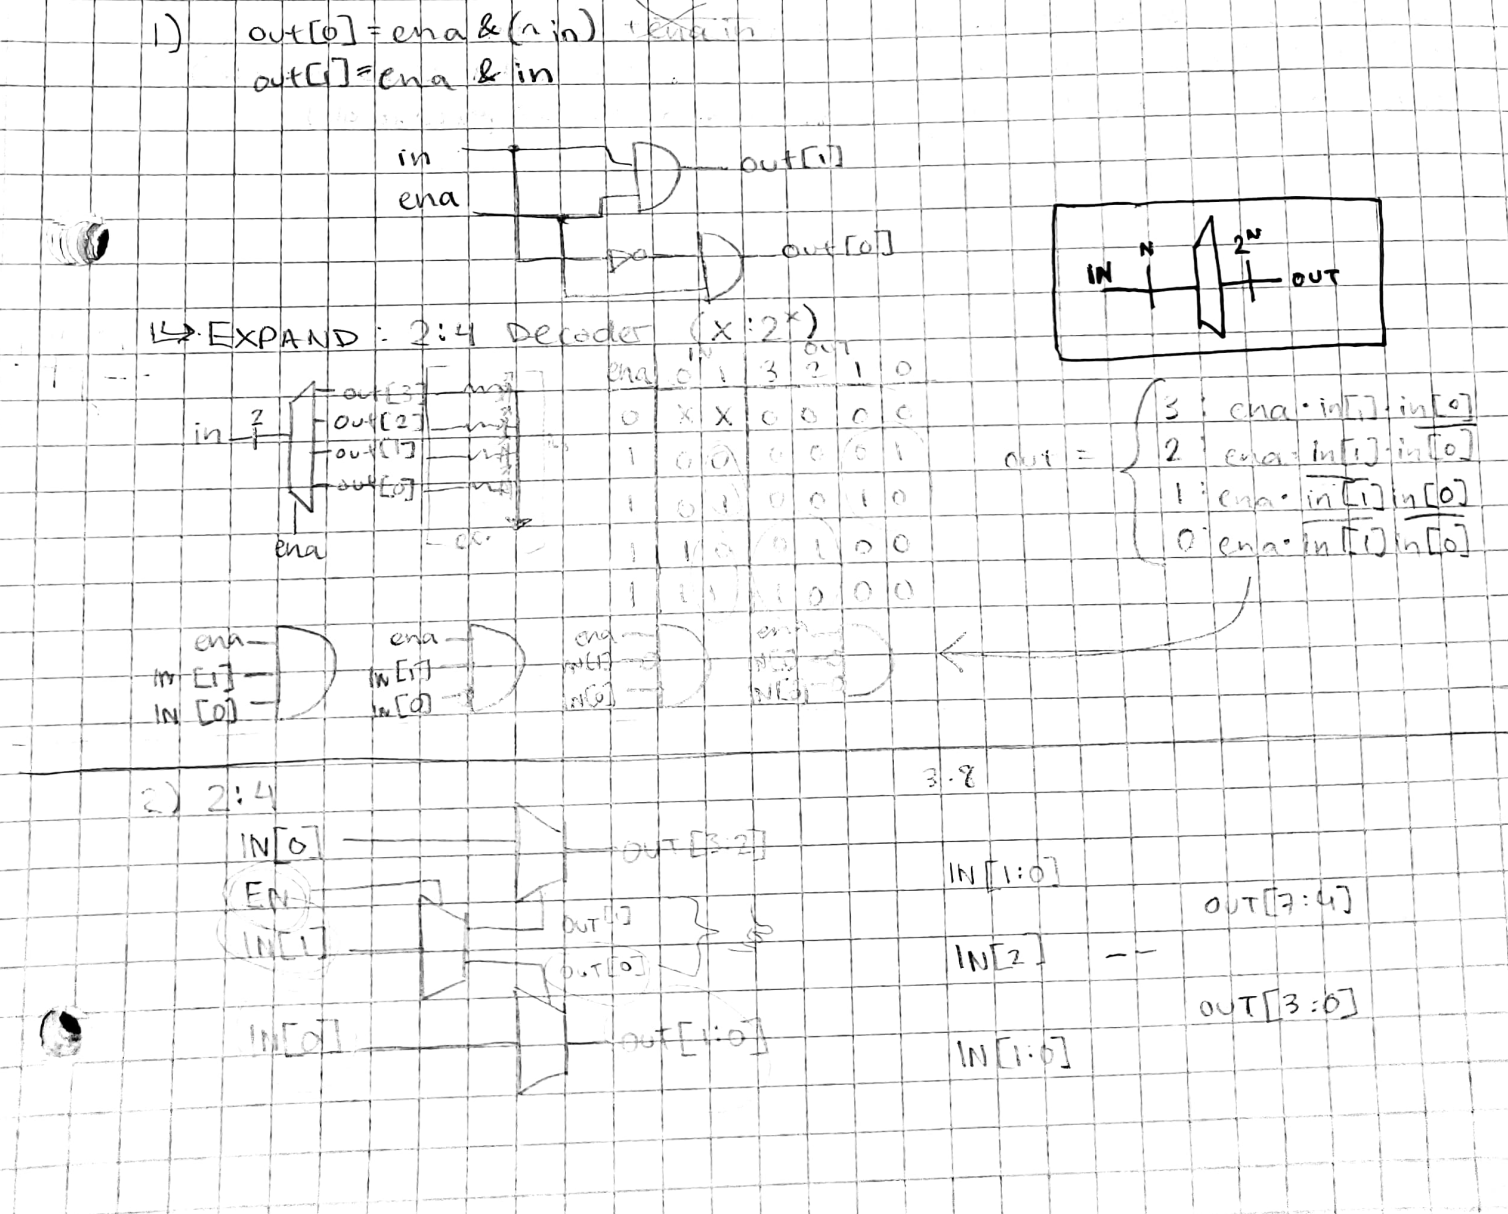 1) out[0] = ena & (~in)
out[1] = ena & in
in
ena
out[1]
out[0]
IN N 2^N OUT
↳ EXPAND : 2:4 Decoder (x : 2^x)
in 2
out[3]
out[2]
out[1]
out[0]
ena
IN OUT
ena 0 1 3 2 1 0
0 X X 0 0 0 0
1 0 0 0 0 0 1
1 0 1 0 0 1 0
1 1 0 0 1 0 0
1 1 1 1 0 0 0
out = { 3 : ena · in[1] · in[0]
2 : ena · in[1] · in[0]
1 : ena · in[1] in[0]
0 : ena · in[1] in[0]
ena ena ena ena
IN[1] IN[1] IN[1] IN[1]
IN[0] IN[0] IN[0] IN[0]
2) 2:4
IN[0]
OUT[3:2]
EN
OUT[1]
IN[1]
OUT[0]
IN[0]
OUT[1:0]
3:8
IN[1:0]
OUT[7:4]
IN[2] --
OUT[3:0]
IN[1:0]